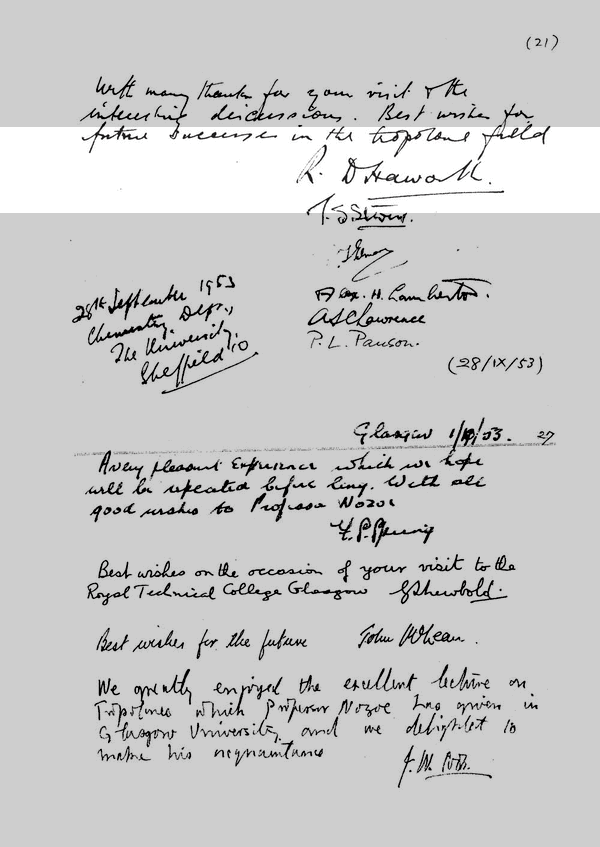 (21)
With many thanks for your visit & the
interesting discussions. Best wishes for
future successes in the tropolone field
R. D Haworth.
T. S. Stevens.
28th September 1953
Chemistry Dept.,
The University,
Sheffield 10
Alex. H. Lamberton.
ASC Lawrence
P. L. Pauson.
(28/IX/53)
Glasgow 1/10/53. 27
A very pleasant Experience which we hope
will be repeated before long. With all
good wishes to Professor Nozoe
F. S. Spring
Best wishes on the occasion of your visit to the
Royal Technical College Glasgow G T Newbold.
Best wishes for the future John McLean.
We greatly enjoyed the excellent lecture on
Tropolones which Professor Nozoe has given in
Glasgow University and we delighted to
make his acquaintance
J. W. Cook.